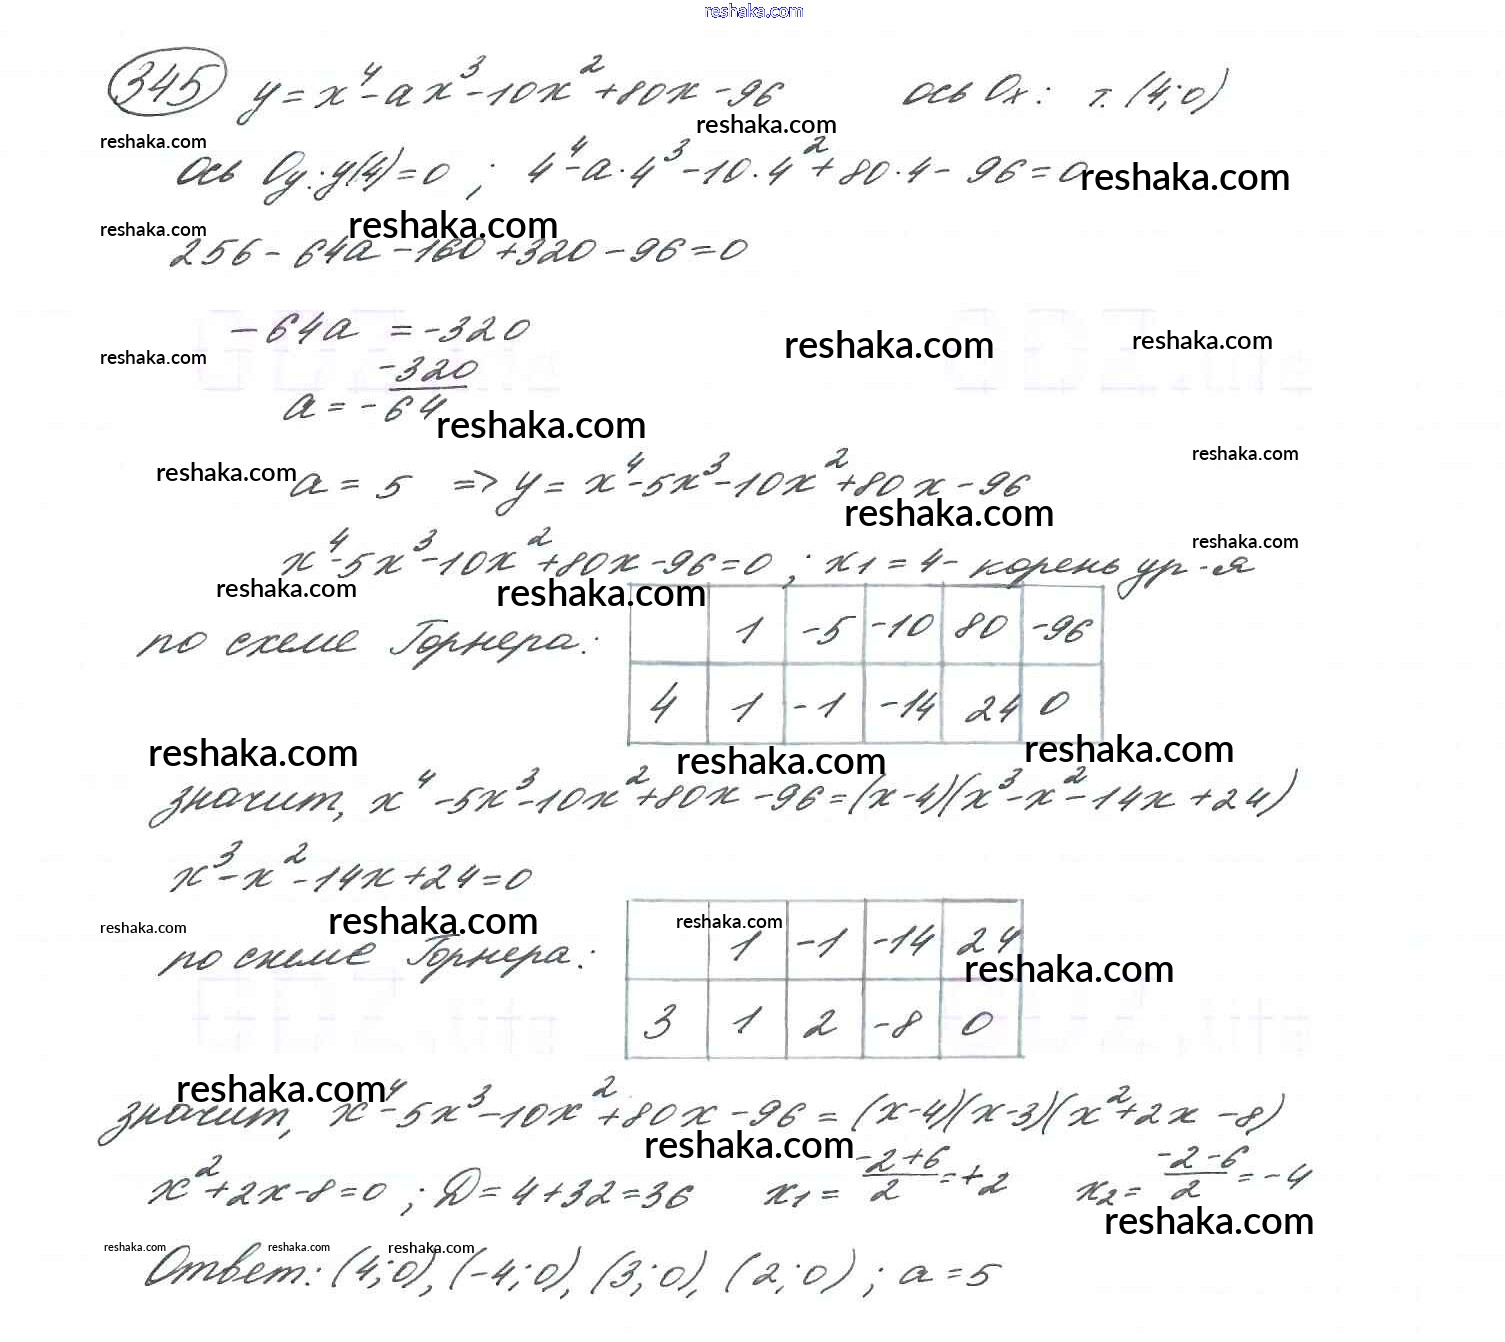 reshaka.com
345 y = x⁴ - ax³ - 10x² + 80x - 96 ось Ox: т. (4; 0)
reshaka.com reshaka.com
ось Oy: y(4) = 0 ; 4⁴ - a · 4³ - 10 · 4² + 80 · 4 - 96 = 0 reshaka.com
reshaka.com reshaka.com
256 - 64a - 160 + 320 - 96 = 0
- 64a = - 320
reshaka.com reshaka.com reshaka.com
a = -320/-64 reshaka.com
reshaka.com a = 5 => y = x⁴ - 5x³ - 10x² + 80x - 96 reshaka.com
reshaka.com
x⁴ - 5x³ - 10x² + 80x - 96 = 0 ; x₁ = 4 - корень ур-я reshaka.com
reshaka.com reshaka.com
по схеме Горнера:
1 -5 -10 80 -96
4 1 -1 -14 24 0
reshaka.com reshaka.com reshaka.com
значит, x⁴ - 5x³ - 10x² + 80x - 96 = (x - 4)(x³ - x² - 14x + 24)
x³ - x² - 14x + 24 = 0
reshaka.com reshaka.com reshaka.com
по схеме Горнера:
1 -1 -14 24
reshaka.com
3 1 2 -8 0
reshaka.com
значит, x⁴ - 5x³ - 10x² + 80x - 96 = (x - 4)(x - 3)(x² + 2x - 8)
reshaka.com
x² + 2x - 8 = 0 ; D = 4 + 32 = 36 x₁ = -2+6/2 = +2 x₂ = -2-6/2 = -4
reshaka.com
reshaka.com reshaka.com reshaka.com
Ответ: (4; 0), (-4; 0), (3; 0), (2; 0) ; a = 5